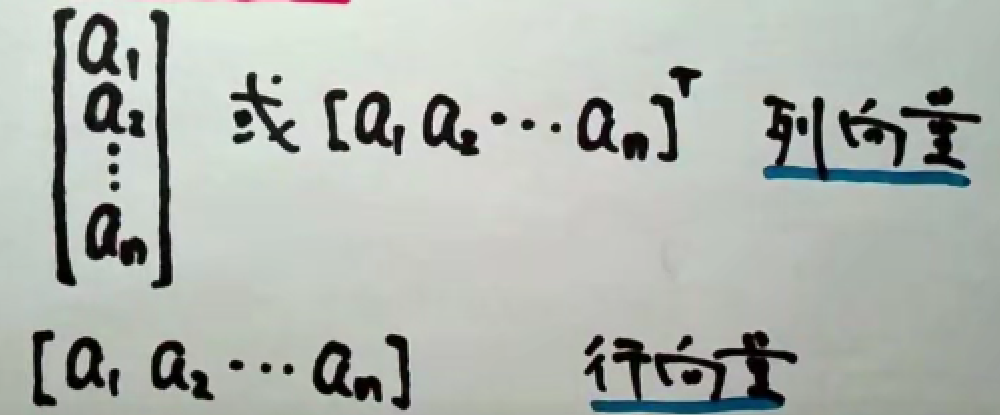 [a₁ a₂ ⋮ aₙ] 或 [a₁ a₂ ⋯ aₙ]ᵀ 列向量
[a₁ a₂ ⋯ aₙ] 行向量